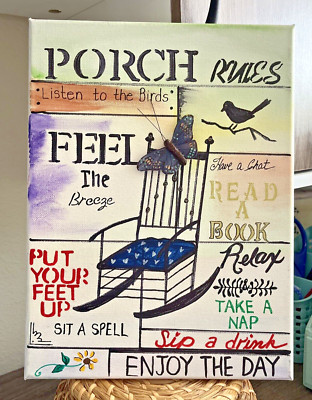 PORCH RULES
Listen to the Birds
FEEL
The
Breeze
Have a Chat
READ
A
BOOK
Relax
PUT
YOUR
FEET
UP
TAKE A
NAP
SIT A SPELL
Sip a drink
ENJOY THE DAY